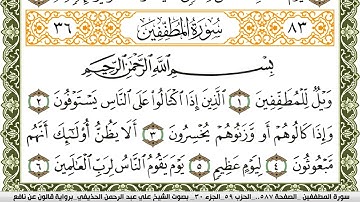 ٣٦ سُورَةُ الْمُطَفِّفِينَ ٨٣
بِسْمِ اللَّهِ الرَّحْمَٰنِ الرَّحِيمِ
وَيْلٌ لِلْمُطَفِّفِينَ ١ الَّذِينَ إِذَا اكْتَالُوا عَلَى النَّاسِ يَسْتَوْفُونَ ٢
وَإِذَا كَالُوهُمْ أَو وَّزَنُوهُمْ يُخْسِرُونَ ٣ أَلَا يَظُنُّ أُوْلَٰئِكَ أَنَّهُم
مَّبْعُوثُونَ ٤ لِيَوْمٍ عَظِيمٍ ٥ يَوْمَ يَقُومُ النَّاسُ لِرَبِّ الْعَالَمِينَ ٦
سورة المطففين _ الصفحة ٥٨٧ _ الحزب ٥٩ _ الجزء ٣٠ _ بصوت الشيخ علي عبد الرحمن الحذيفي _ برواية قالون عن نافع